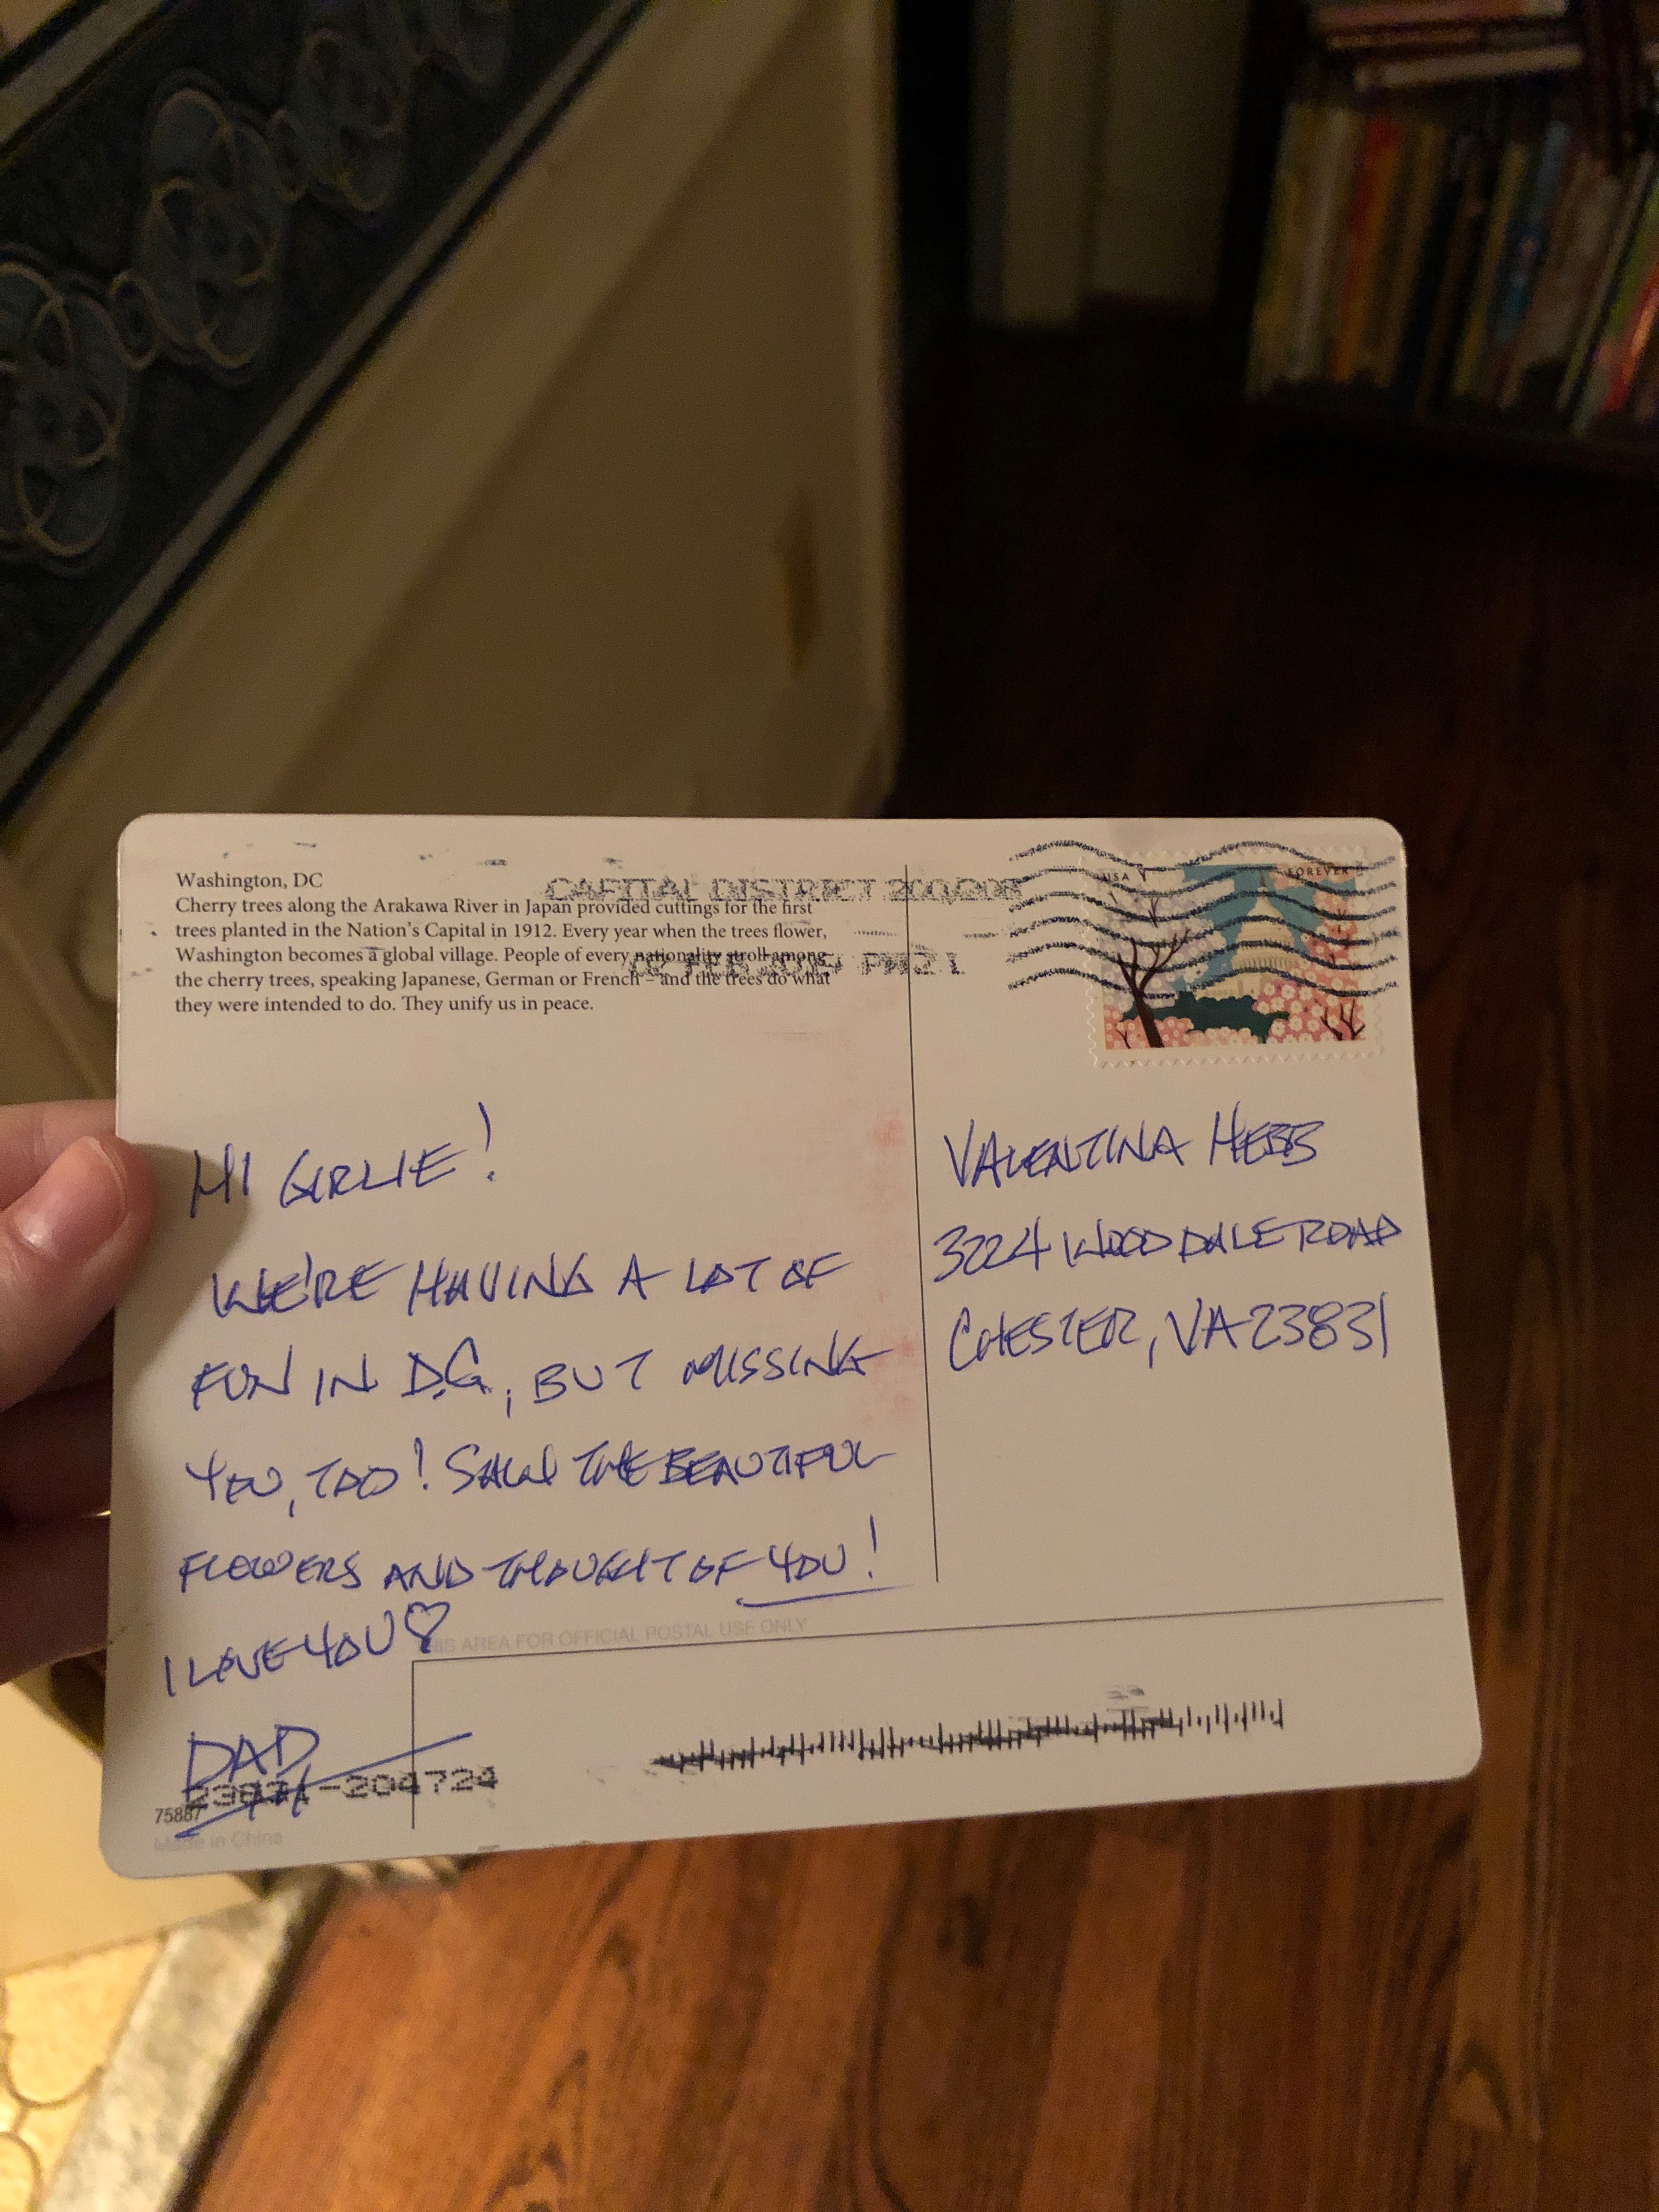 Washington, DC
Cherry trees along the Arakawa River in Japan provided cuttings for the first
trees planted in the Nation's Capital in 1912. Every year when the trees flower,
Washington becomes a global village. People of every nationality stroll among
the cherry trees, speaking Japanese, German or French – and the trees do what
they were intended to do. They unify us in peace.
CAPITAL DISTRICT 200/208
FEB PM 2 L
USA FOREVER
HI GIRLIE!
WE'RE HAVING A LOT OF
FUN IN D.C., BUT MISSING
YOU, TOO! SAW THE BEAUTIFUL
FLOWERS AND THOUGHT OF YOU!
I LOVE YOU
DAD
VALENTINA HEBB
3224 WOODDALE ROAD
CHESTER, VA 23831
THIS AREA FOR OFFICIAL POSTAL USE ONLY
23831-204724
75887
Made in China